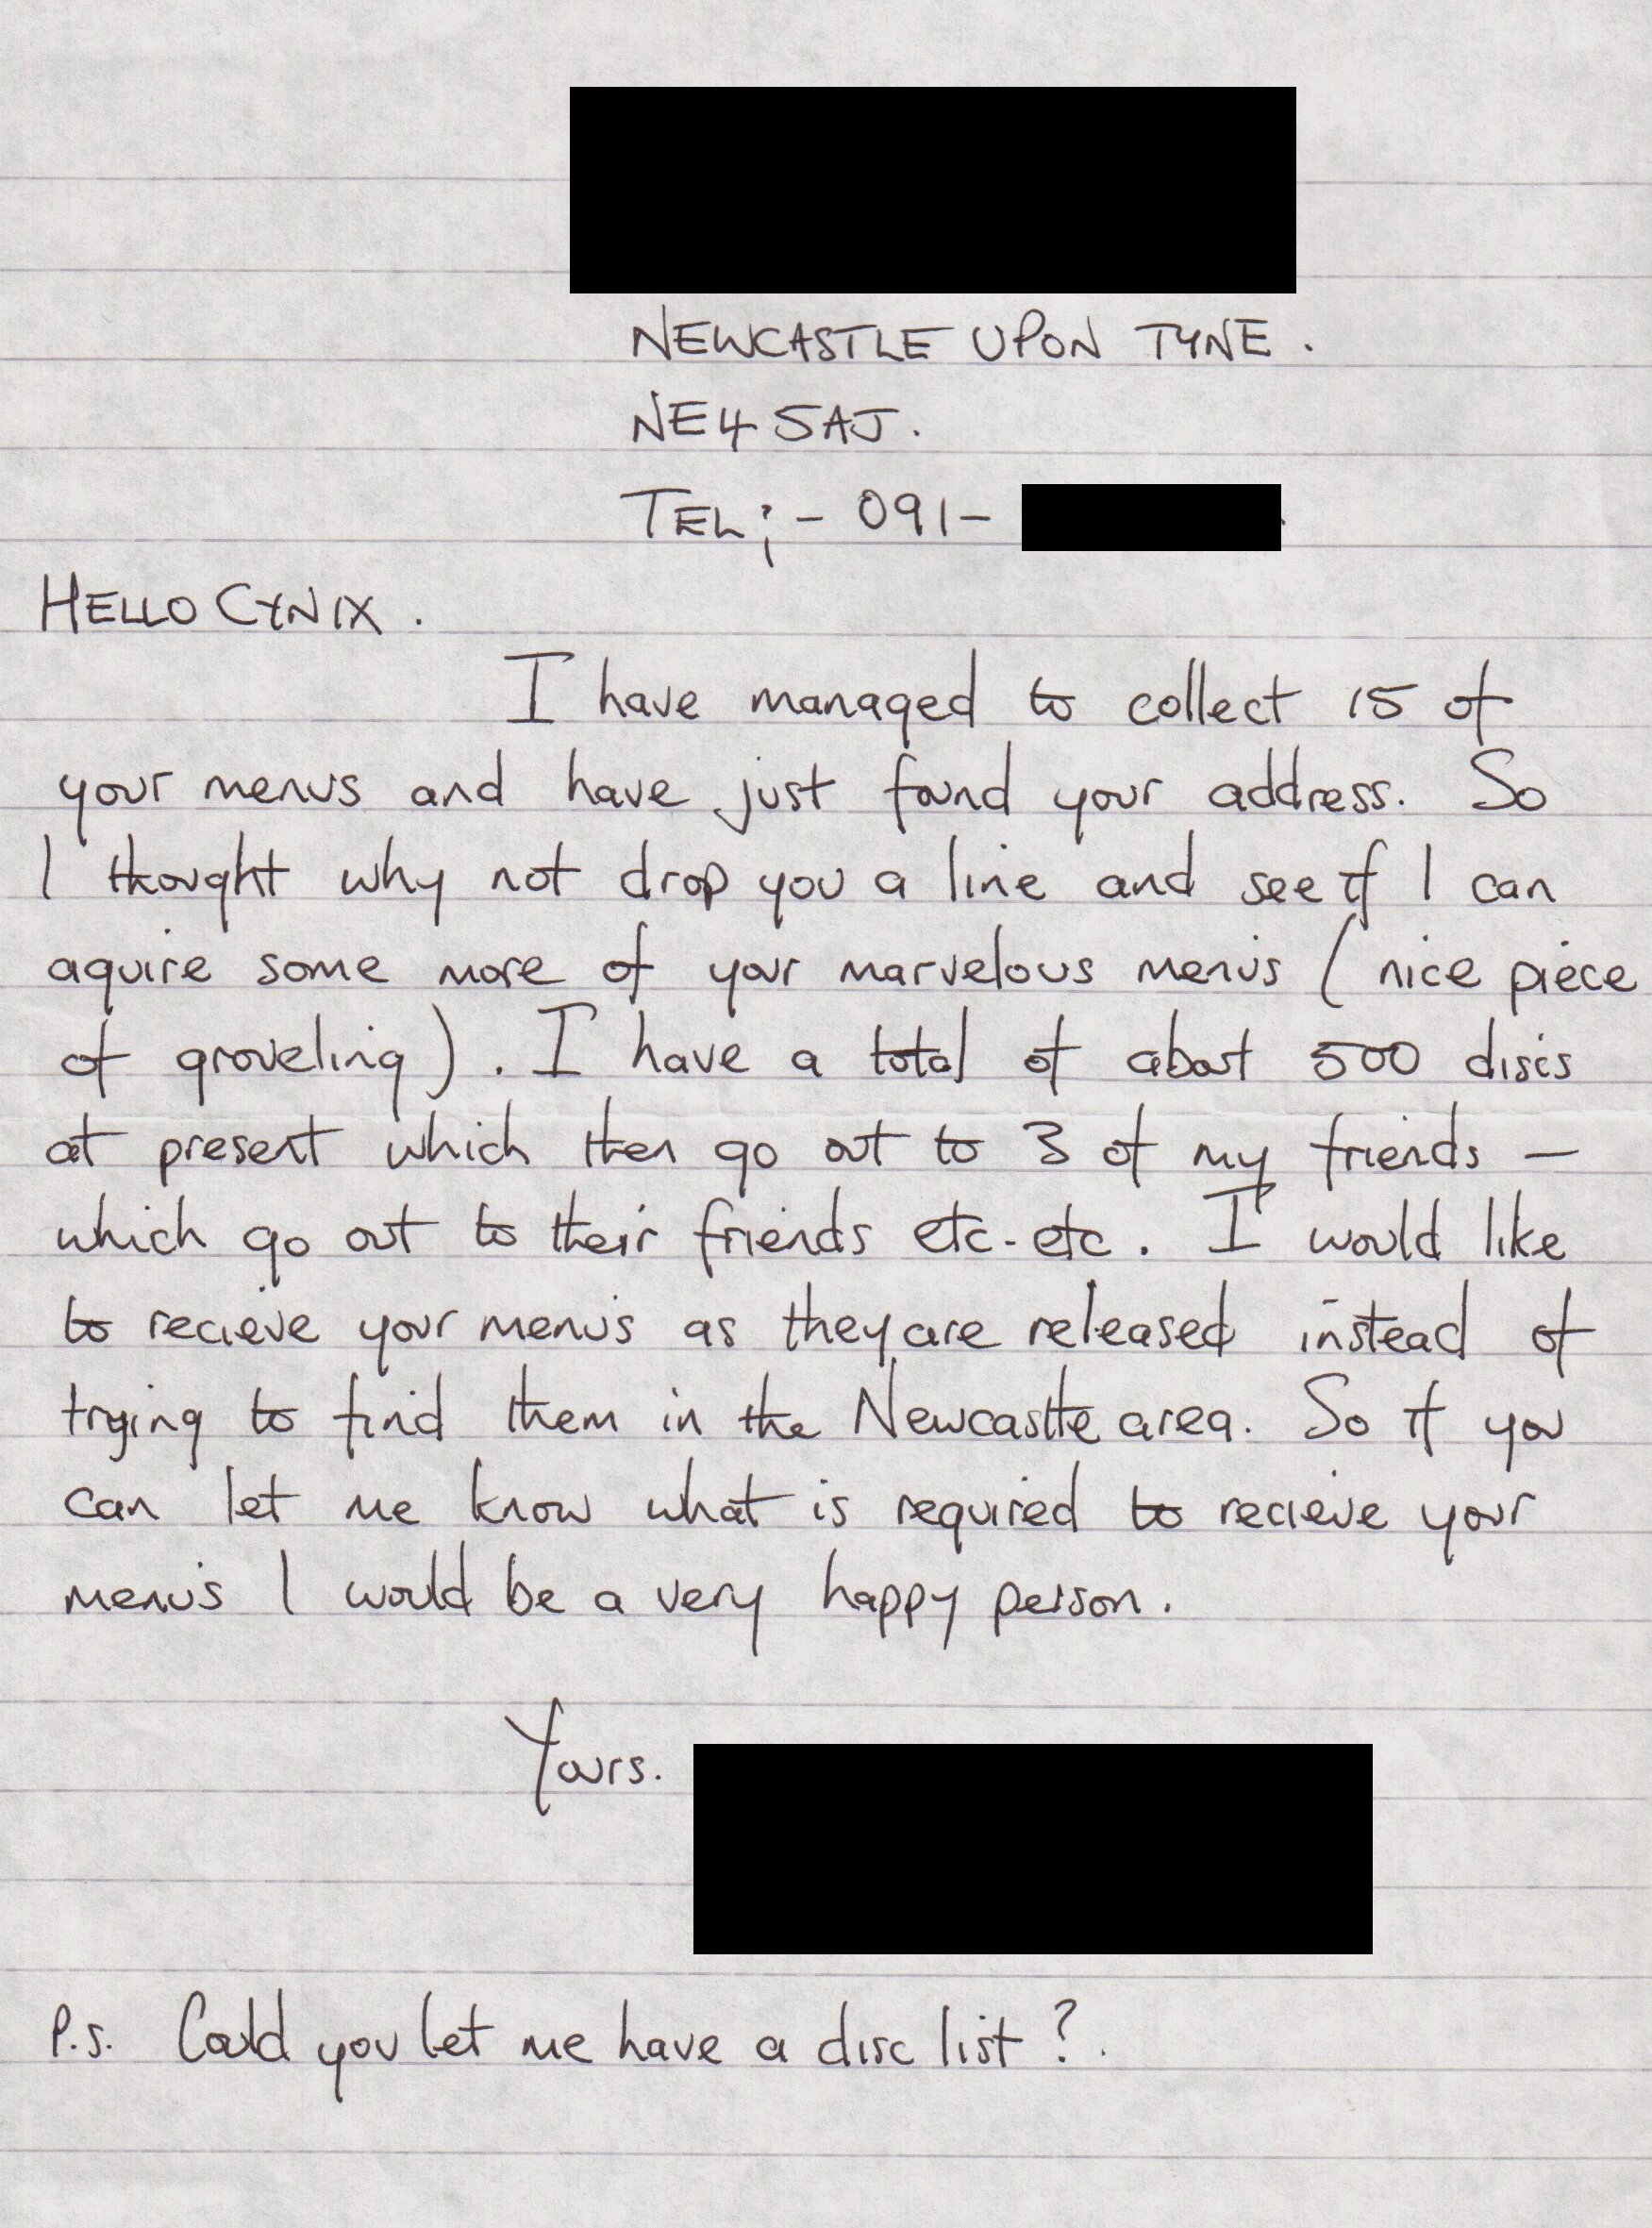 NEWCASTLE UPON TYNE.
NE4 5AJ.
TEL;- 091-
HELLO CYNIX.
I have managed to collect 15 of
your menus and have just found your address. So
I thought why not drop you a line and see if I can
aquire some more of your marvelous menus (nice piece
of groveling). I have a total of about 500 discs
at present which then go out to 3 of my friends -
which go out to their friends etc-etc. I would like
to recieve your menus as they are released instead of
trying to find them in the Newcastle area. So if you
can let me know what is required to recieve your
menus I would be a very happy person.
Yours.
P.S. Could you let me have a disc list?.